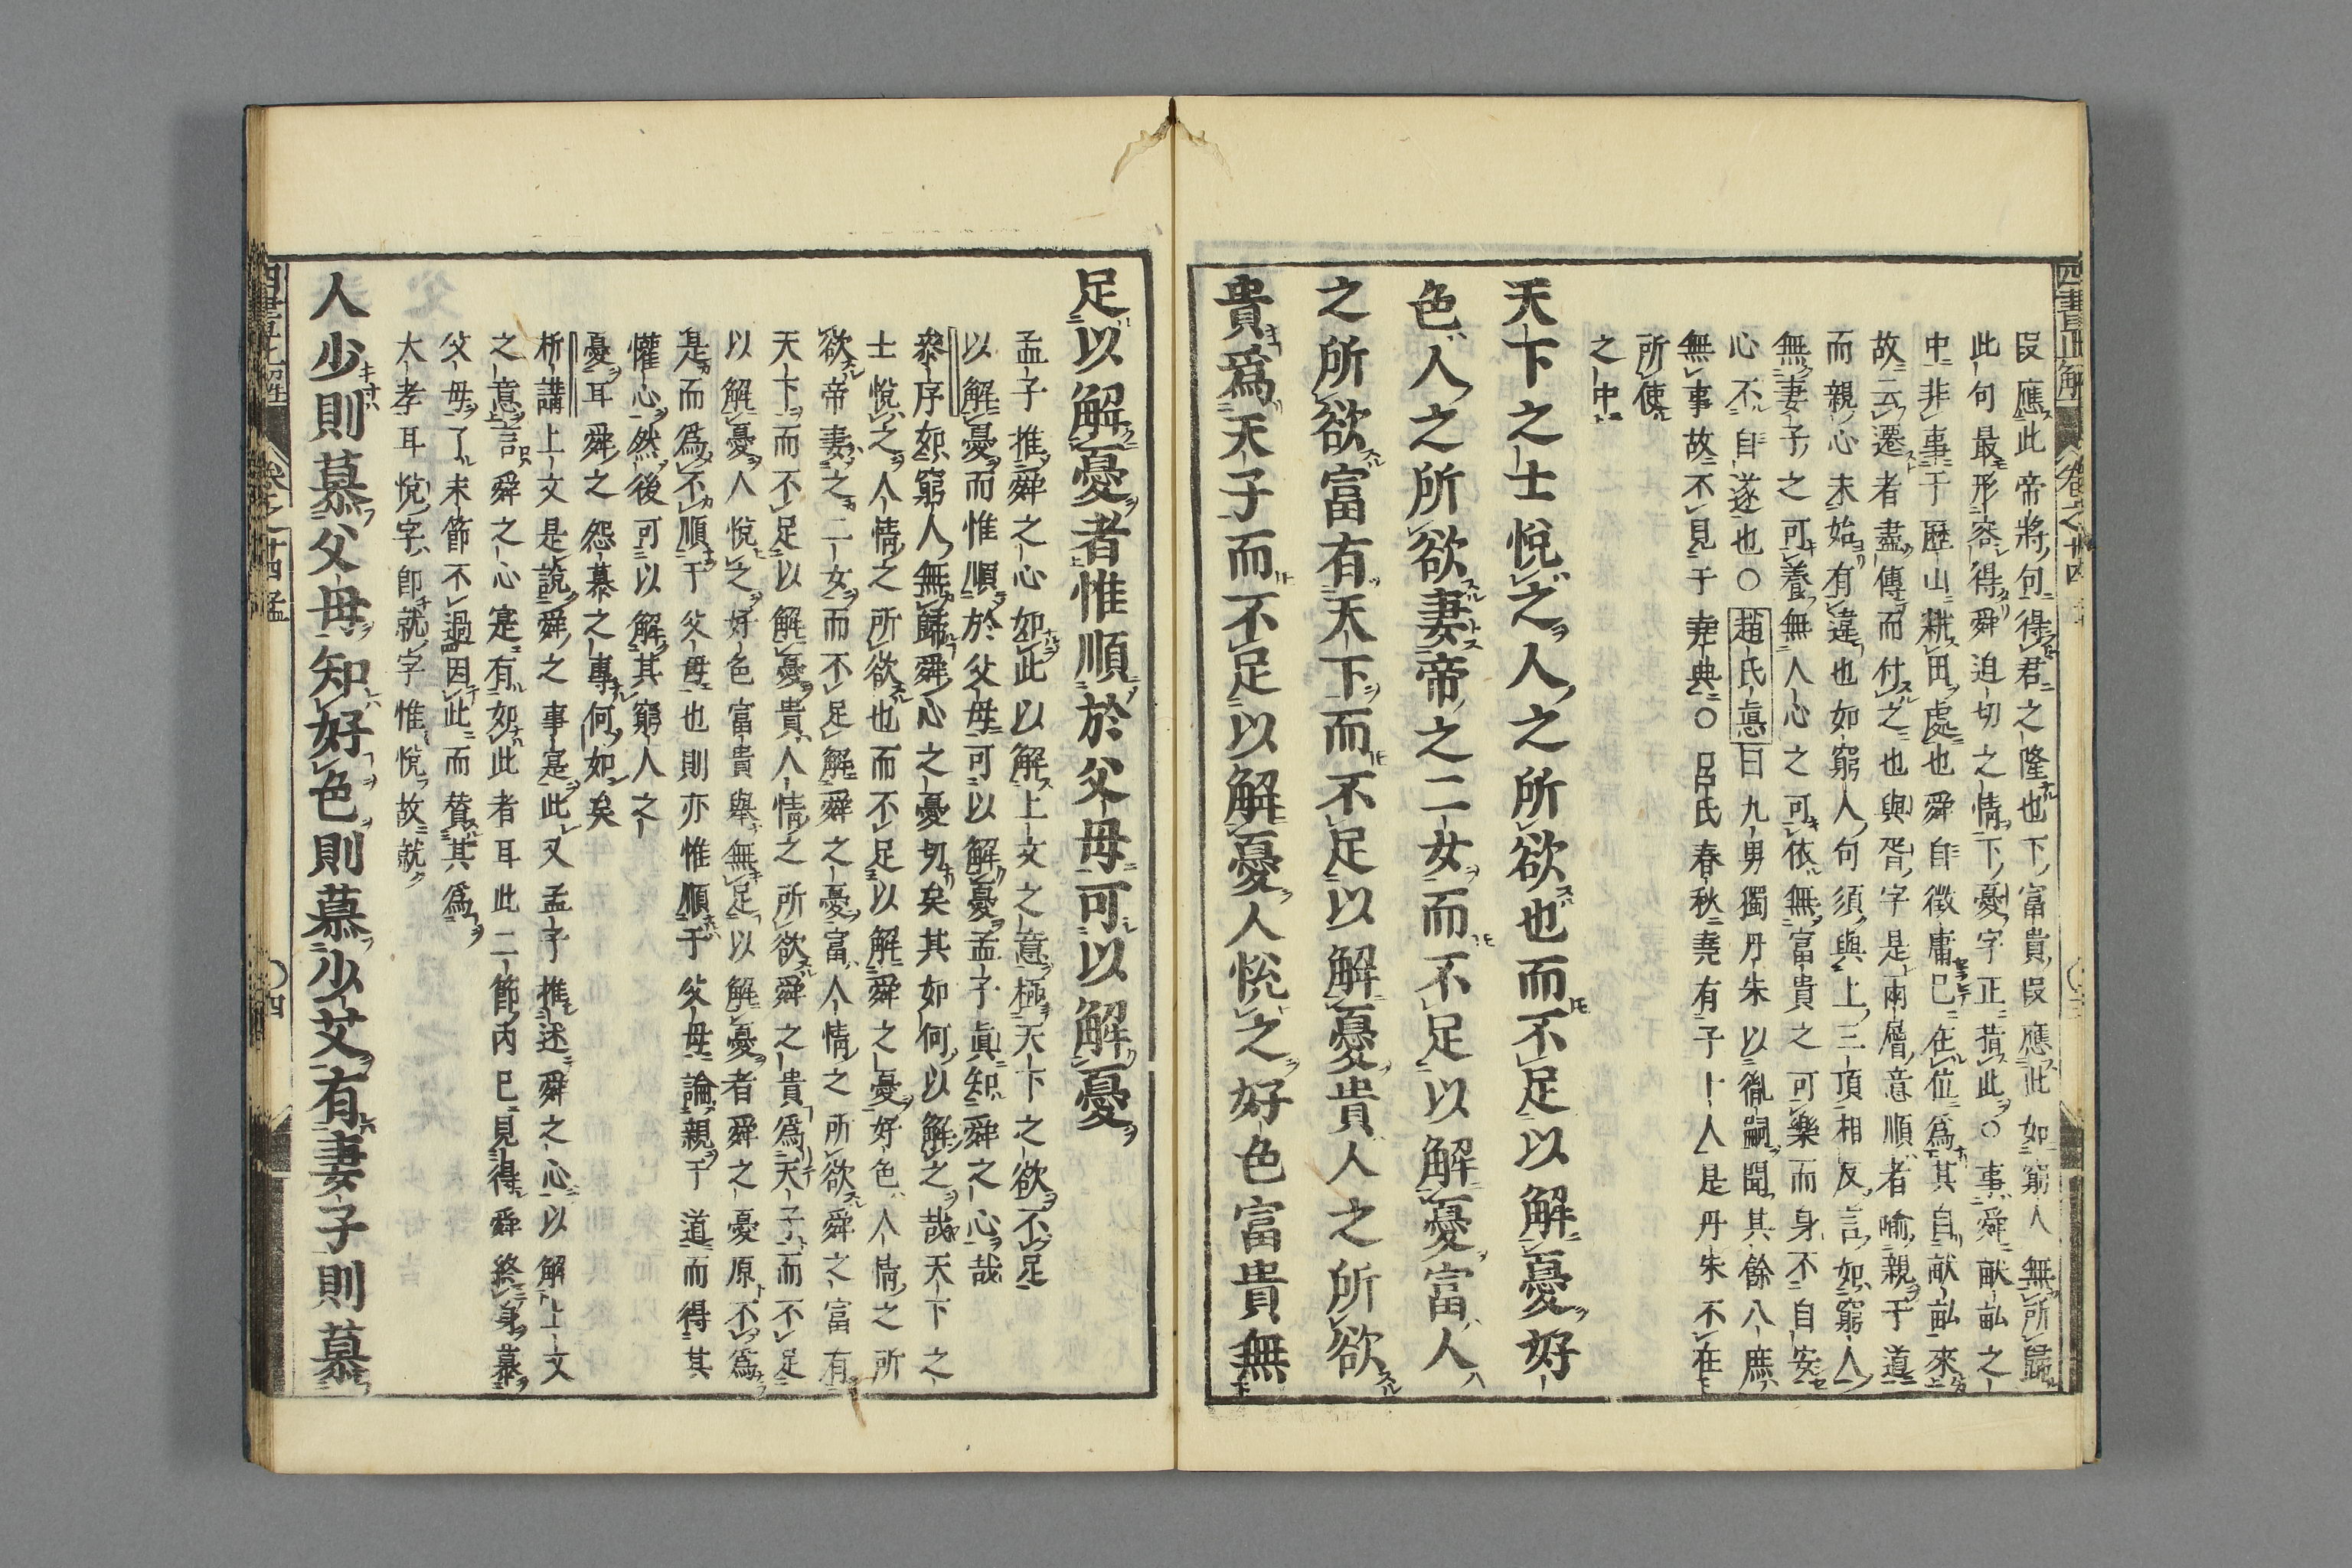 四書正解 卷之廿四
叚應此帝將句得君之隆也下富貴叚應此如窮人無所歸
此句最形容得舜迫切之情下憂字正指此○事舜畎畝之
中非事于歷山耕田處也舜自徵庸已在位爲其自献畝來
故云遷者盡傳而付之也與胥字是兩層意順者喻親于道
而親心未始有違也如窮人句須與上三項相反言如窮人
無妻子之可養無人心之可依無富貴之可樂而身不自安
心不自遂也○趙氏悳曰九男獨丹朱以胤嗣聞其餘八庶
無事故不見于堯典○呂氏春秋堯有子十人是丹朱不在
所使
之中
天下之士悅之人之所欲也而不足以解憂好
色人之所欲妻帝之二女而不足以解憂富人
之所欲富有天下而不足以解憂貴人之所欲
貴爲天子而不足以解憂人悅之好色富貴無
足以解憂者惟順於父母可以解憂
孟子推舜之心如此以解上文之意極天下之欲不足
以解憂而惟順於父母可以解憂孟子眞知舜之心哉
叅序如窮人無歸舜心之憂切矣其如何以解之哉天下之
士悅之人情之所欲也而不足以解舜之憂好色人情之所
欲帝妻之二女而不足解舜之憂富人情之所欲舜之富有
天下而不足以解憂貴人情之所欲舜之貴爲天子而不足
以解憂人悅之好色富貴舉無足以解憂者舜之憂原不爲
是而爲不順于父母也則亦惟順于父母論親于道而得其
懽心然後可以解其窮人之
憂耳舜之怨慕之專何如矣
析講上文是說舜之事寔此又孟子推述舜之心以解上文
之意言舜之心寔有如此者耳此二節內已見得舜終身慕
父母了末節不過因此而賛其爲
大孝耳悅字卽就字惟悅故就
人少則慕父母知好色則慕少艾有妻子則慕
卷之廿四孟
四